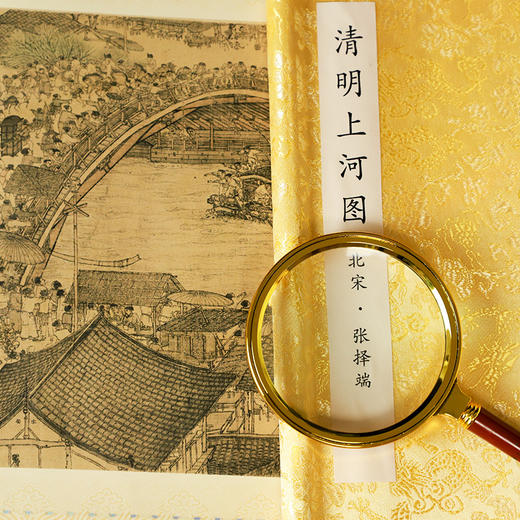 清明上河图
北宋·张择端